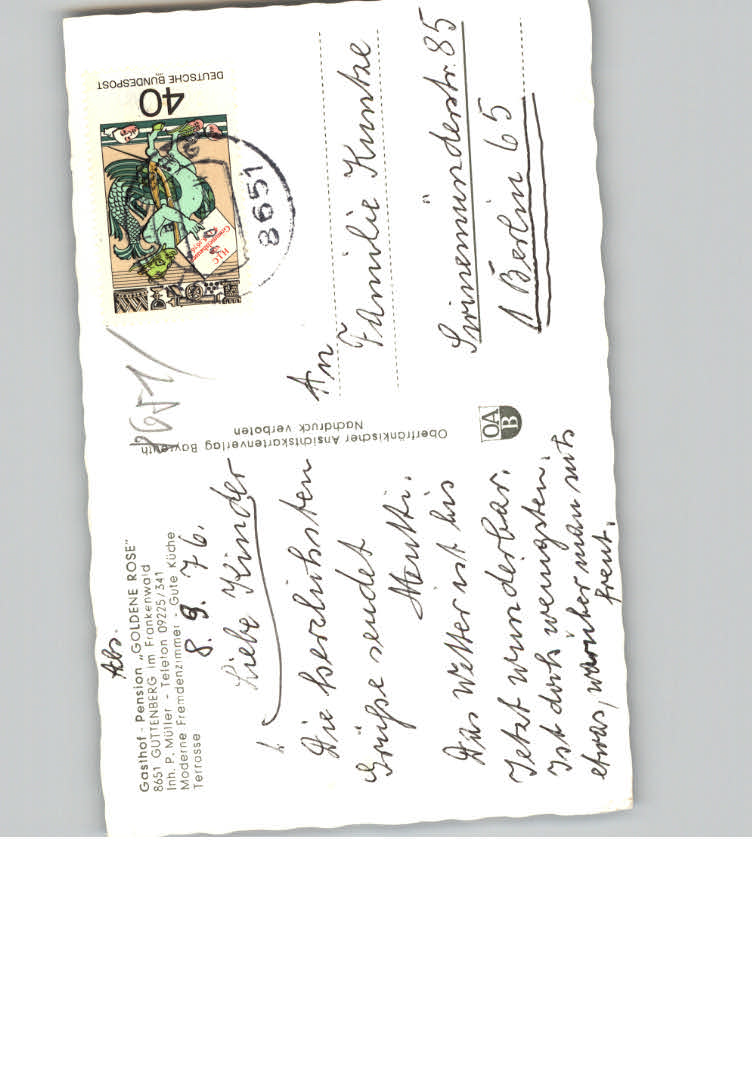 Abs.
Gasthof - Pension „GOLDENE ROSE"
8651 GUTTENBERG im Frankenwald
Inh. P. Müller - Telefon 09225/341
Moderne Fremdenzimmer - Gute Küche
Terrasse
8. 9. 76.
Liebe Kinder
Die herzlichsten
Grüße sendet
Mutti.
Das Wetter ist bis
Jetzt wunderbar.
Ist doch wenigsten
etwas, worüber man sich
freut.
Oberfränkischer Ansichtskartenverlag Bayreuth
Nachdruck verboten
OA
B
8651
DEUTSCHE BUNDESPOST
40
8651
An
Familie Kuntze
Swinemünderstr. 85
1 Berlin 65